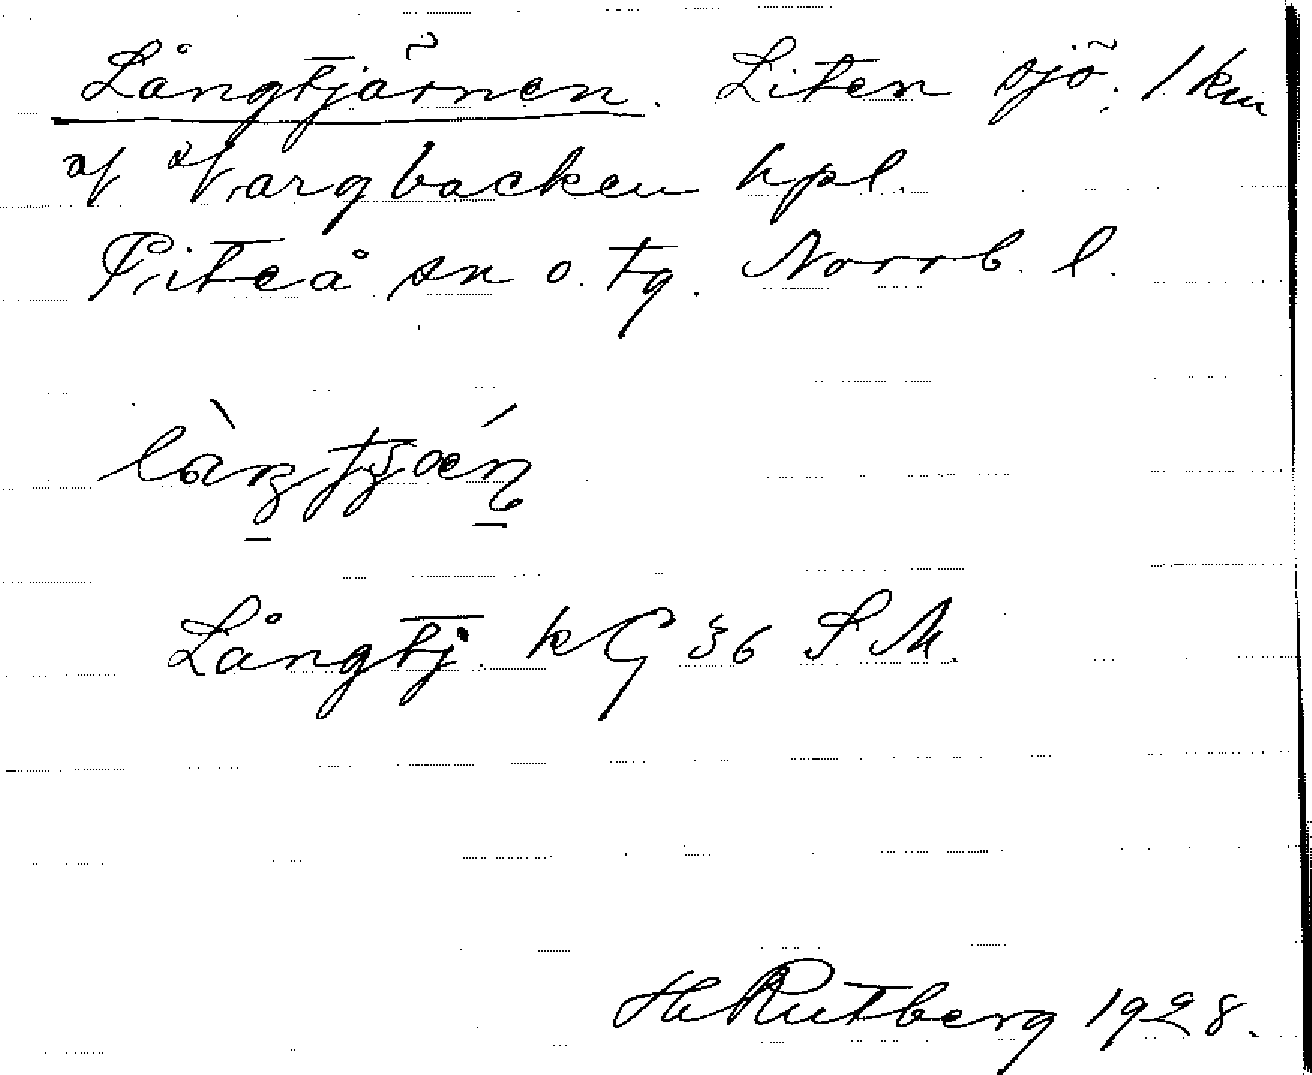 Långtjärnen. Liten sjö, 1 km
av Vargbacken hpl.
Piteå sn o. tg. Norrb. l.
Långtj. kG 36 S M.
H. Rutberg 1928.